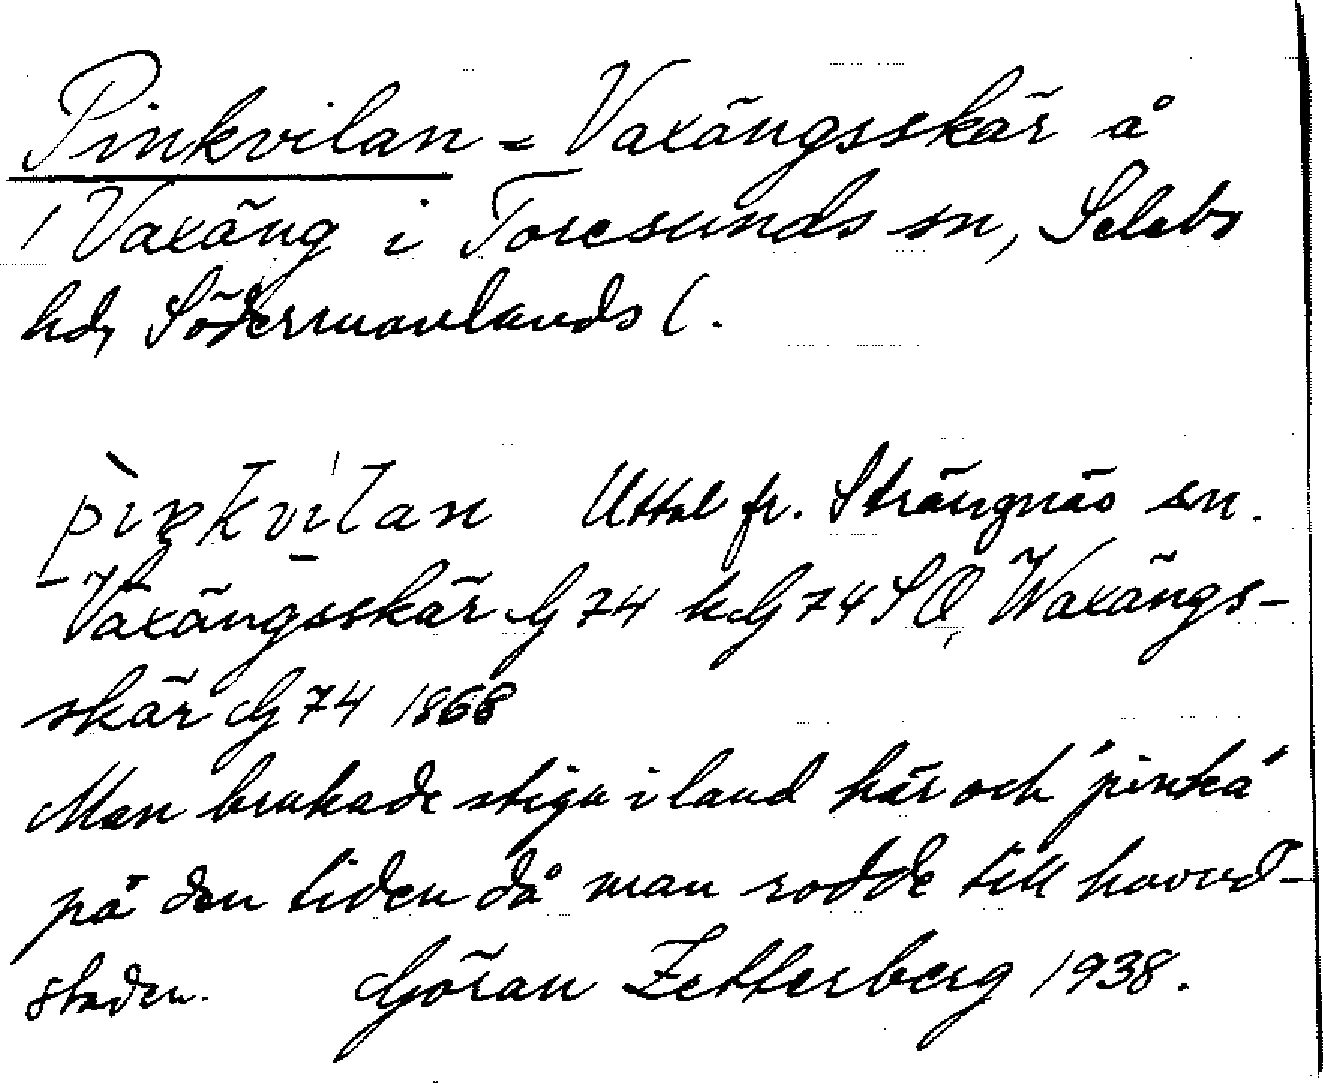 Pinkvilan = Vaxängsskär å
/ Vaxäng i Toresunds sn, Selebo
hd, Södermanlands l.
pìŋkvi̠lan Uttal fr. Strängnäs sn.
Vaxängsskär G74 k G74 SO, Waxängs-
skär G74 1868
Man brukade stiga i land här och 'pinka'
på den tiden då man rodde till huvud-
staden. Göran Zetterberg 1938.